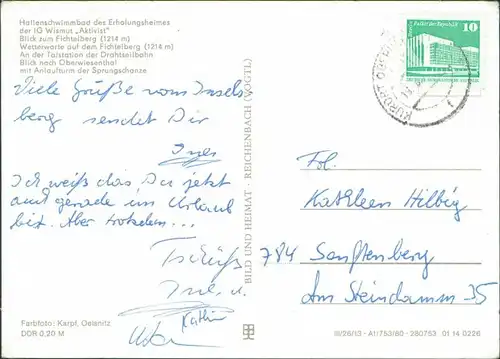 Hallenschwimmbad des Erholungsheimes
der IG Wismut „Aktivist"
Blick zum Fichtelberg (1214 m)
Wetterwarte auf dem Fichtelberg (1214 m)
An der Talstation der Drahtseilbahn
Blick nach Oberwiesenthal
mit Anlaufturm der Sprungschanze
Viele Grüße vom Insels
berg sendet Dir
Ines
Ich weiß das, Du jetzt
auch gerade im Urlaub
bist. Aber trotzdem...
Tschüß
Ines u.
Kathrin
BILD UND HEIMAT · REICHENBACH (VOGTL)
10
Palast der Republik
KURORT
Frl.
Kathleen Hilbig
784 Senftenberg
Am Steindamm 35
Farbfoto: Karpf, Oelsnitz
DDR 0,20 M
III/26/13 · A1/753/80 · 280753 01 14 0226